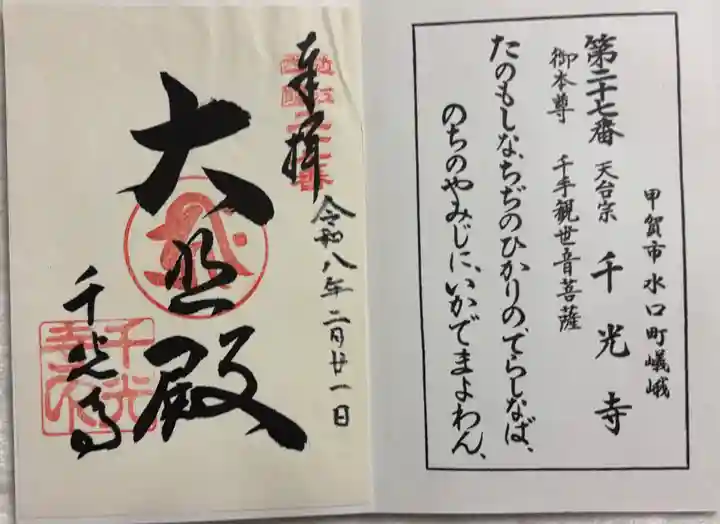 甲賀市水口町嶬峨
第二十七番 天台宗 千光寺
御本尊 千手観世音菩薩
たのもしな、ちぢのひかりの、てらしなば、
のちのやみじに、いかでまよわん、
奉拝
令和八年二月廿一日
大悲殿
千光寺